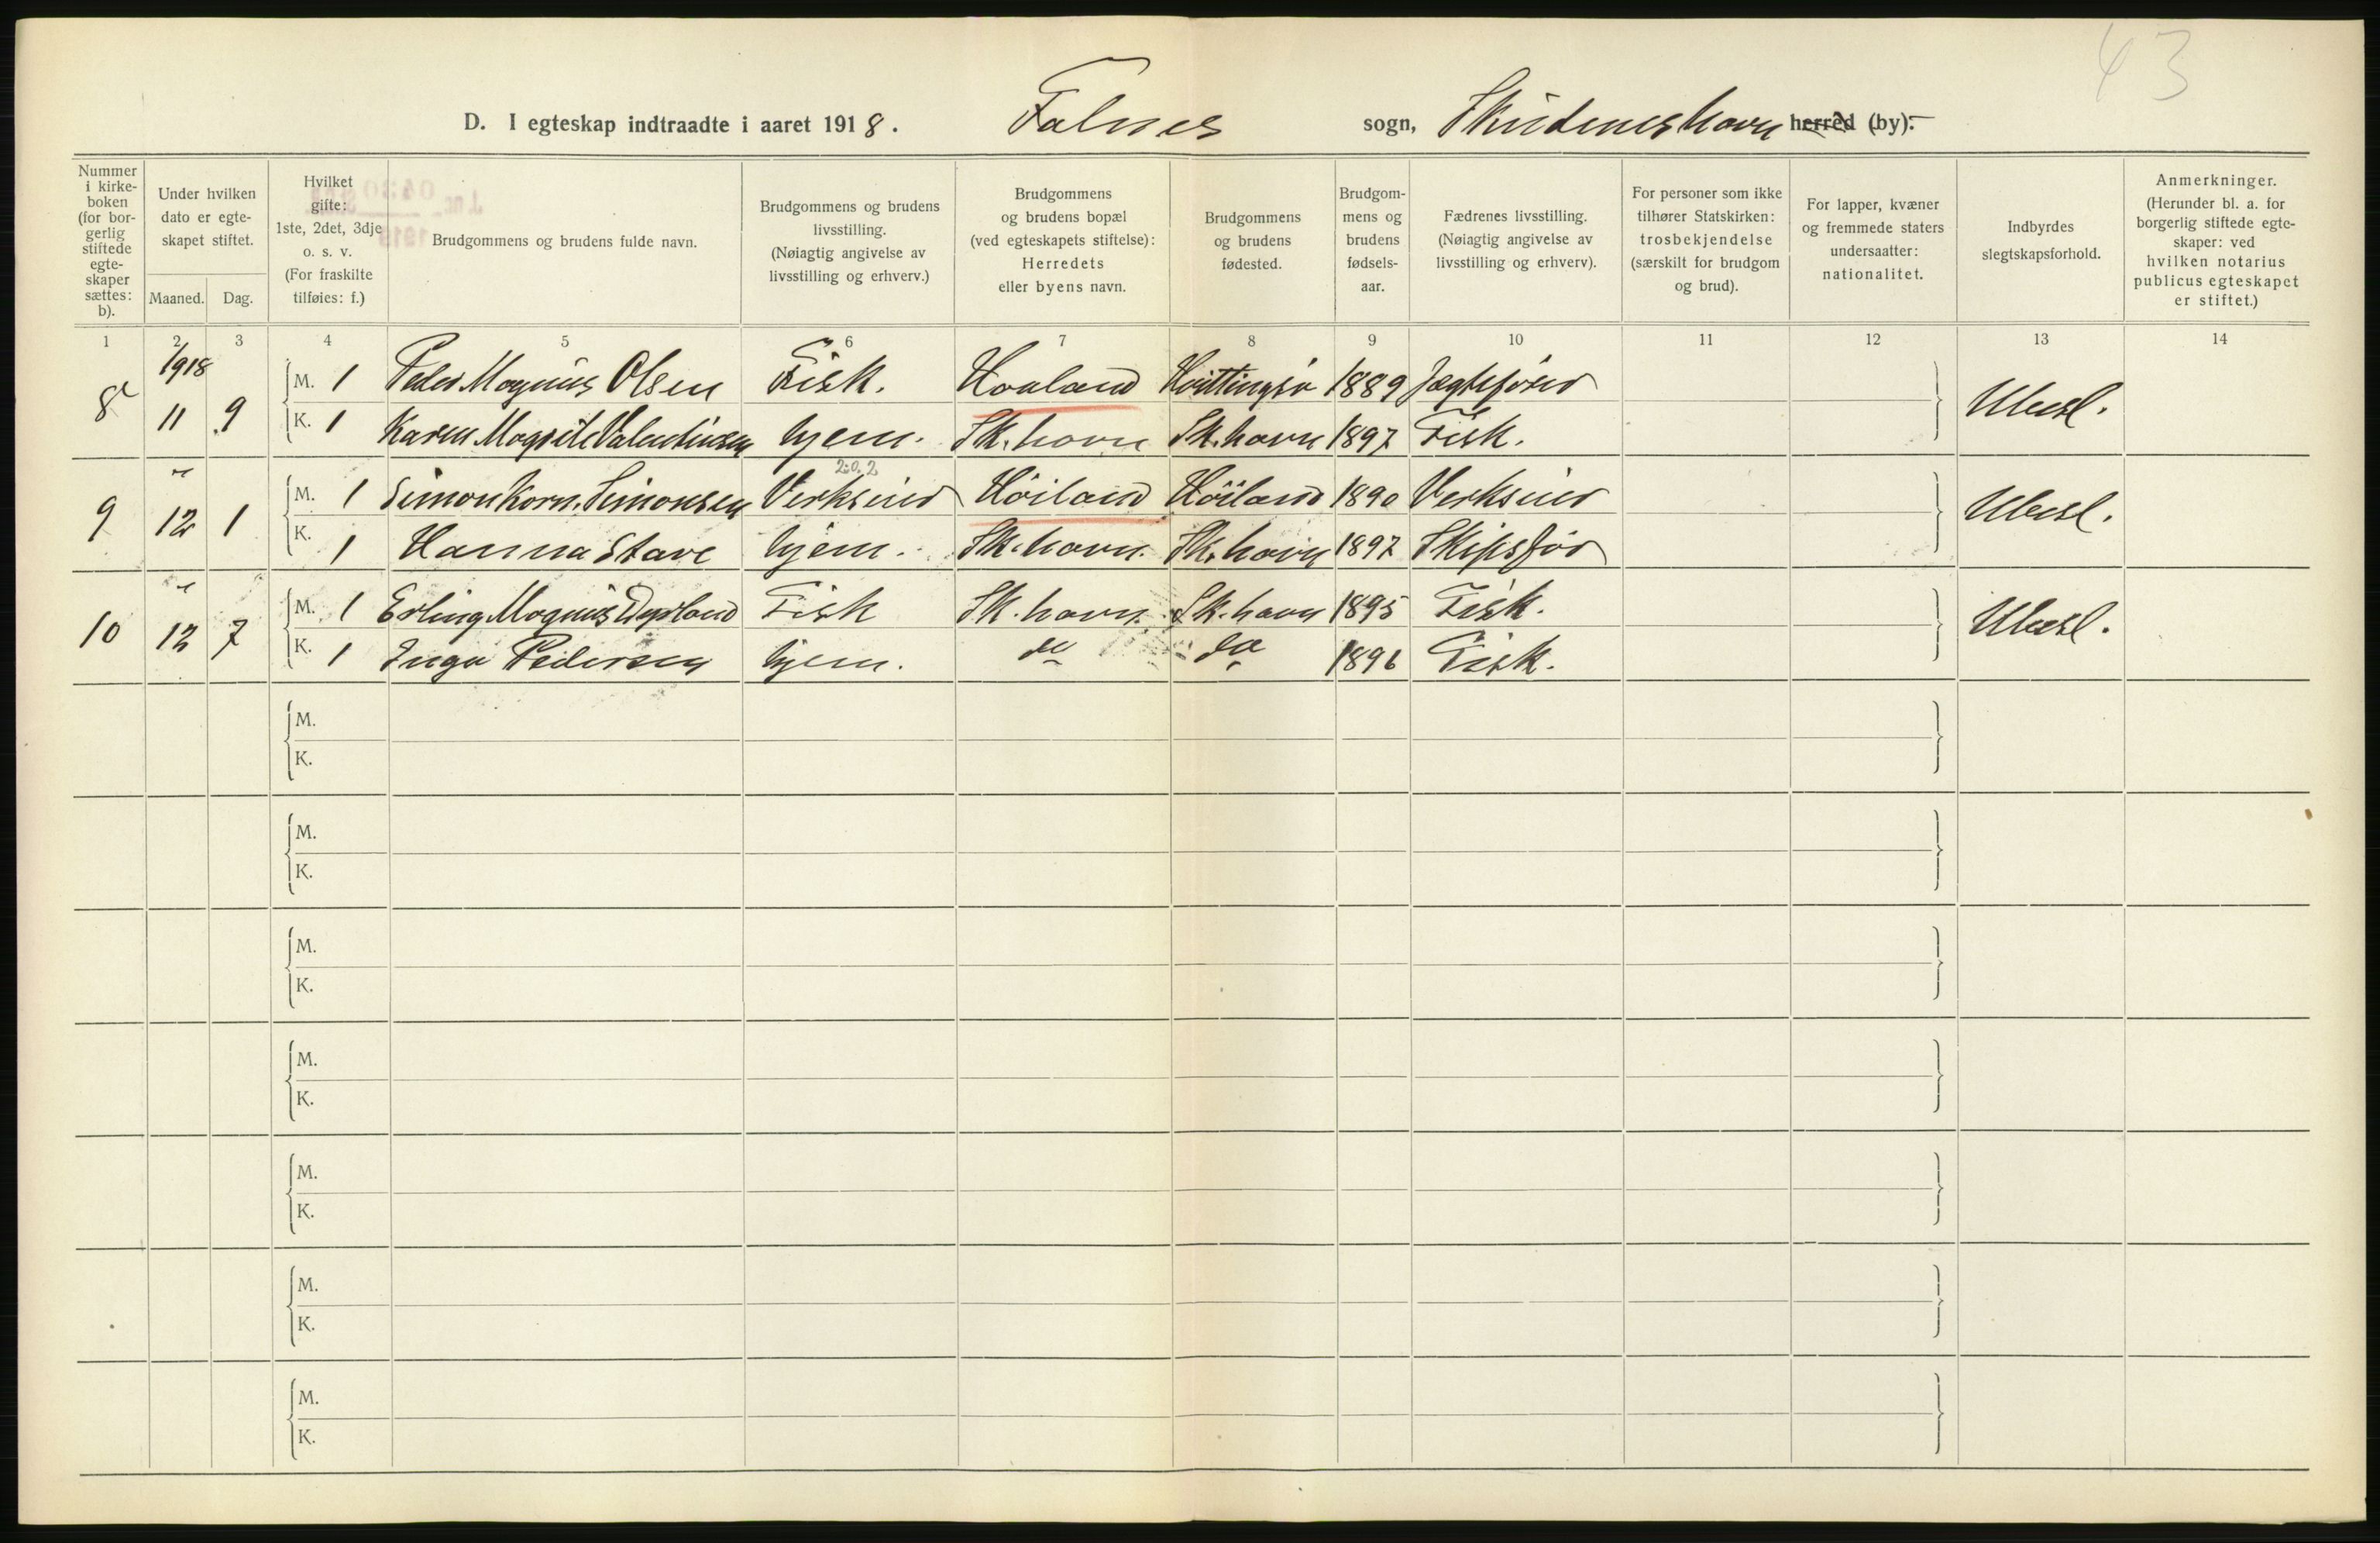 43
D. I egteskap indtraadte i aaret 1918. Falnes sogn, Skudeneshavn herred (by).
Nummer i kirkeboken (for borgerlig stiftede egteskaper sættes: b).
Under hvilken dato er egteskapet stiftet.
Maaned. Dag.
Hvilket gifte: 1ste, 2det, 3dje o. s. v. (For fraskilte tilføies: f.)
Brudgommens og brudens fulde navn.
Brudgommens og brudens livsstilling. (Nøiagtig angivelse av livsstilling og erhverv.)
Brudgommens og brudens bopæl (ved egteskapets stiftelse): Herredets eller byens navn.
Brudgommens og brudens fødested.
Brudgommens og brudens fødselsaar.
Fædrenes livsstilling. (Nøiagtig angivelse av livsstilling og erhverv).
For personer som ikke tilhører Statskirken: trosbekjendelse (særskilt for brudgom og brud).
For lapper, kvæner og fremmede staters undersaatter: nationalitet.
Indbyrdes slegtskapsforhold.
Anmerkninger. (Herunder bl. a. for borgerlig stiftede egteskaper: ved hvilken notarius publicus egteskapet er stiftet.)
1 2 3 4 5 6 7 8 9 10 11 12 13 14
1918
8 11 9 M. 1 Peder Magnus Olsen Fisk. Haaland Hvittingsø 1889 Jægtefører Ubesl.
K. 1 Karen Magrete Valentinsen hjem. Sk.havn Sk.havn 1897 Fisk.
9 12 1 M. 1 Simon Korn. Simonsen Verkseier Höiland Höiland 1890 Verkseier Ubesl.
K. 1 Hanna Stave hjem. Sk.havn. Sk.havn 1897 Skipsfør
10 12 7 M. 1 Erling Magnus Dypland Fisk Sk.havn. Sk.havn 1895 Fisk. Ubesl.
K. 1 Inga Pedersen hjem. do do 1896 Fisk.
M.
K.
M.
K.
M.
K.
M.
K.
M.
K.
M.
K.
M.
K.